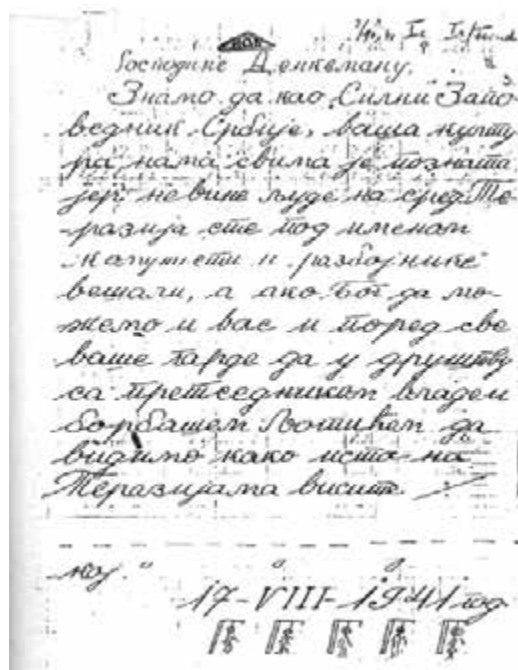 Господине Денкеману,
Знамо да као „Силни Запо
ведник Србије, ваша култу
ра нама свима је позната
јер невине људе на сред Те
разија сте под именом
и разбојнике
вешали, а ако Бог да мо
жемо и вас и поред све
ваше гарде да у друштву
са претседником владем
борбашем Љотићем да
видимо како исто на
Теразијама висите.
17-VIII-1941 год